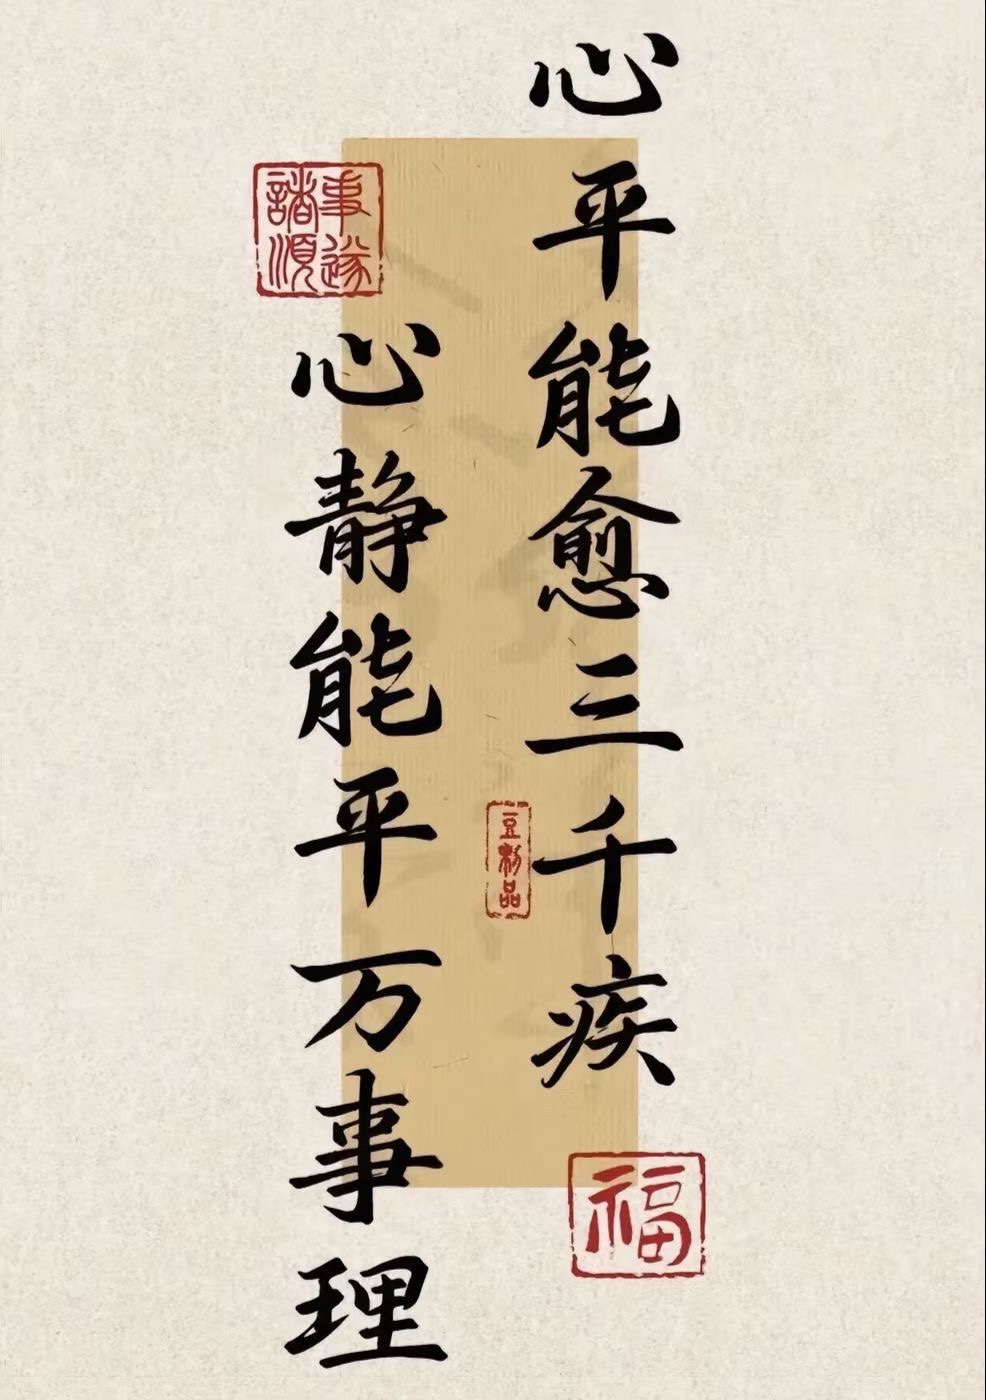 心平能愈三千疾
心静能平万事理
事遂
諸順
豆制品
福